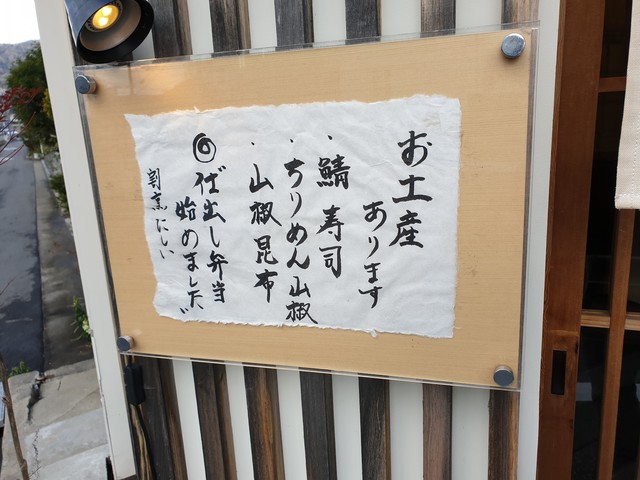 お土産
あります
・鯖寿司
・ちりめん山椒
・山椒昆布
◎仕出し弁当
始めました〃
割烹 にしい